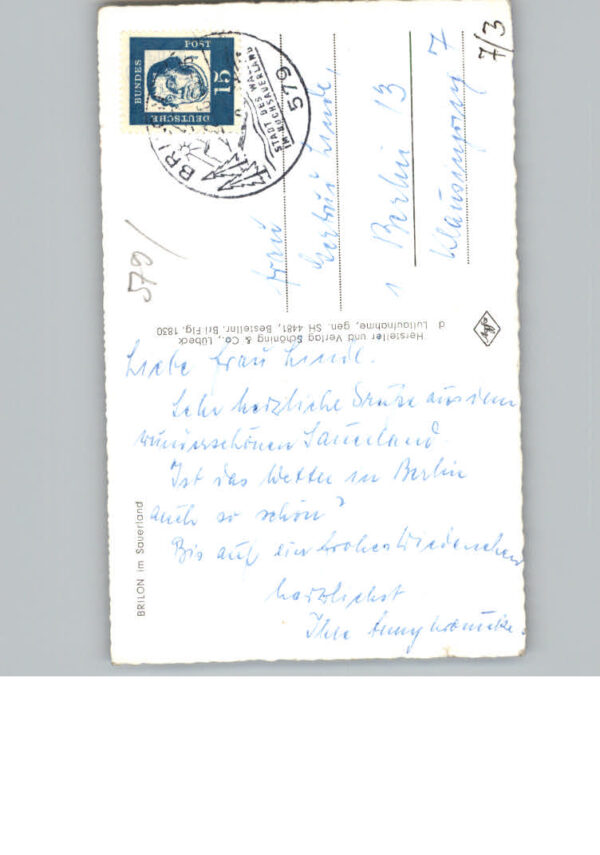 Liebe Frau Linde.
Sehr herzliche Grüße aus dem
wunderschönen Sauerland.
Ist das Wetter in Berlin
auch so schön?
Bis auf ein frohes Wiedersehen
herzlichst
Ihre Anny
BRILON im Sauerland
Hersteller und Verlag Schöning & Co., Lübeck
d Luftaufnahme, gen. SH 4481, Bestellnr. Bri Flg. 1830
Agfa
DEUTSCHE
BUNDES
POST
15
BRI
STADT DES WALDES
IM HOCHSAUERLAND
579
579/
Frau
Gertrud Linde,
1 Berlin 13
7
7/3